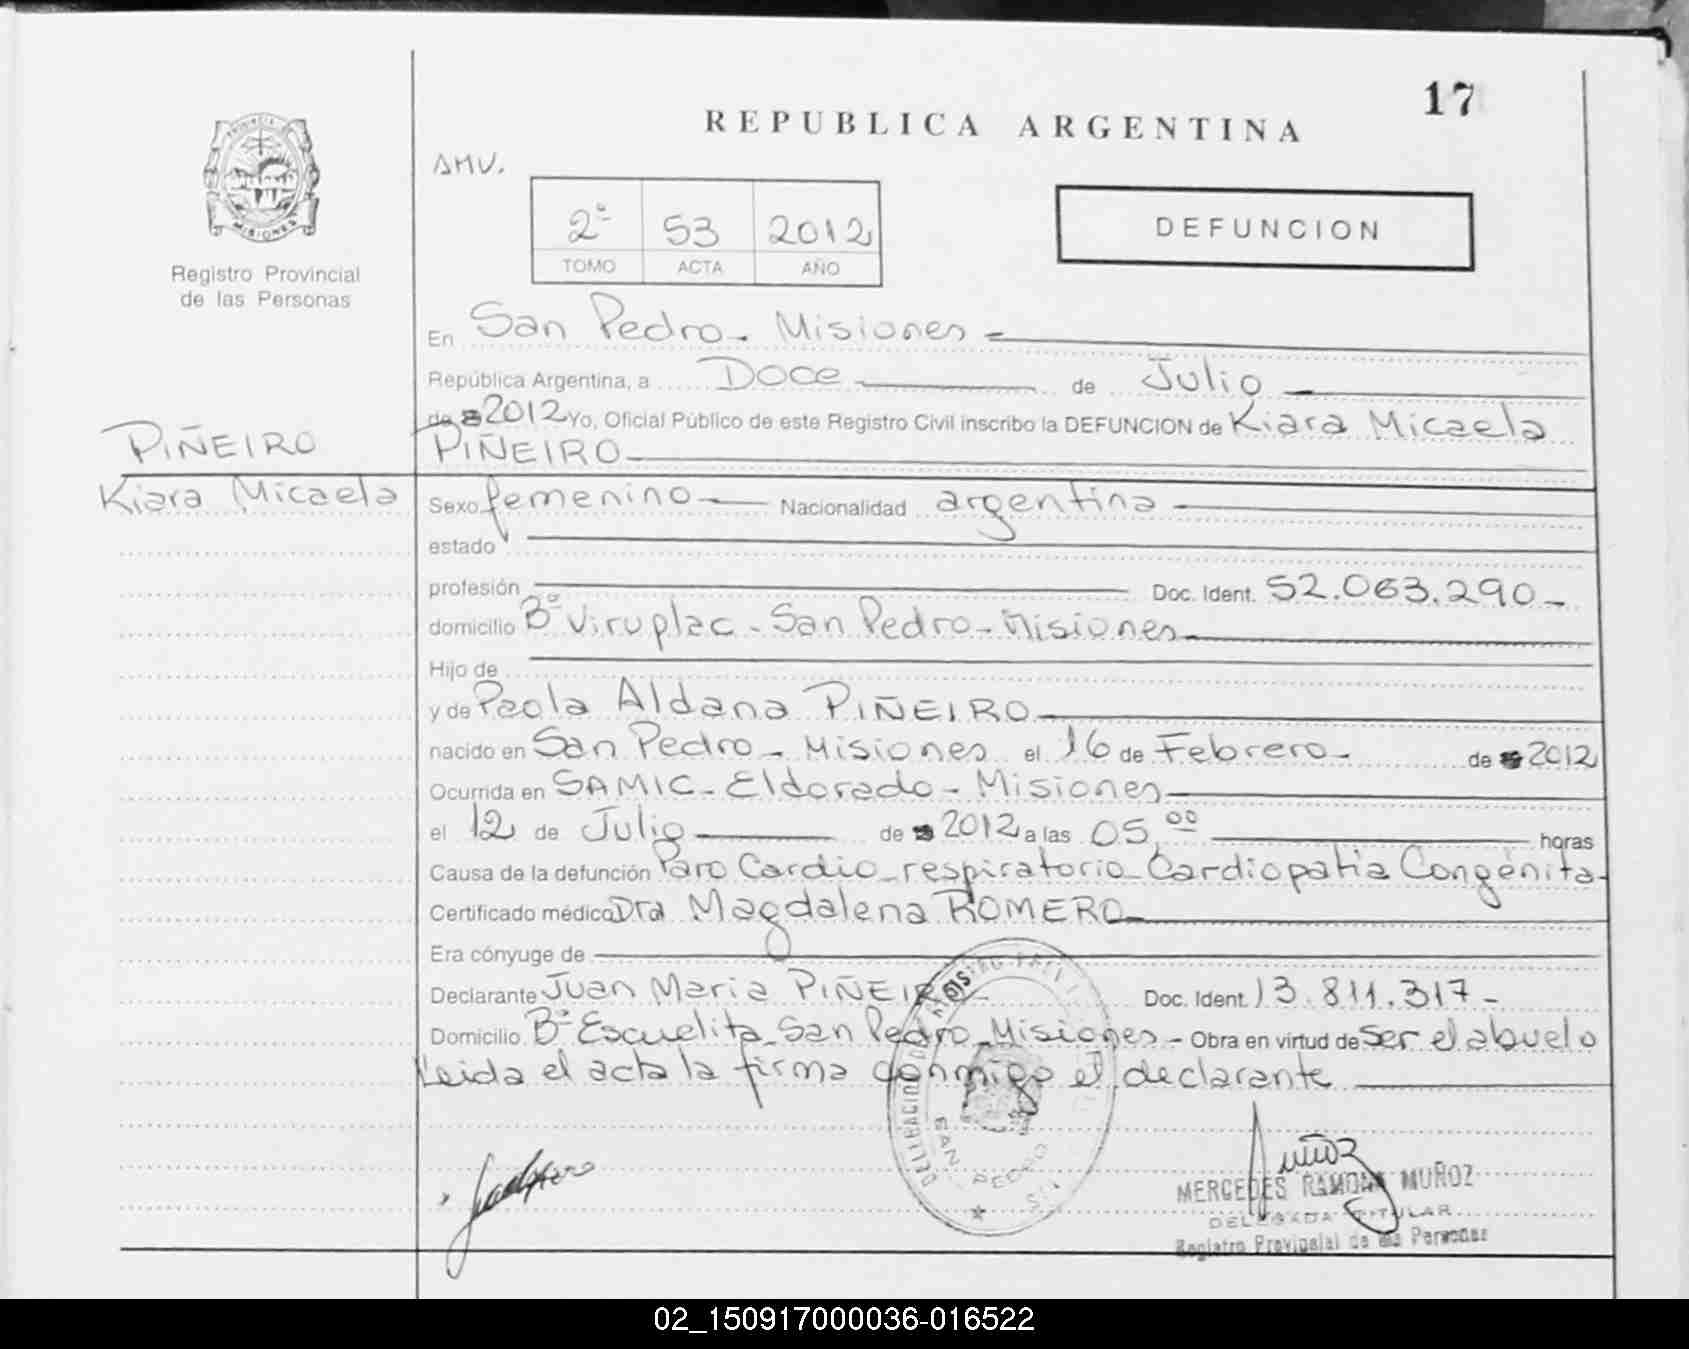 17
REPUBLICA ARGENTINA
PROVINCIA DE
MISIONES
Registro Provincial
de las Personas
AMV.
2º 53 2012
TOMO ACTA AÑO
DEFUNCION
En San Pedro - Misiones
República Argentina, a Doce de Julio
de 2012 Yo, Oficial Público de este Registro Civil inscribo la DEFUNCION de Kiara Micaela
PIÑEIRO
PIÑEIRO
Kiara Micaela
Sexo femenino Nacionalidad argentina
estado
profesión Doc. Ident. 52.063.290-
domicilio Bº Viruplac - San Pedro - Misiones
Hijo de
y de Paola Aldana PIÑEIRO
nacido en San Pedro - Misiones el 16 de Febrero - de 2012
Ocurrida en SAMIC - Eldorado - Misiones
el 12 de Julio de 2012 a las 05,00 horas
Causa de la defunción Paro Cardio-respiratorio - Cardiopatia Congénita-
Certificado médico Dra Magdalena ROMERO
Era cónyuge de
Declarante Juan Maria PIÑEIRO - Doc. Ident. 13.811.317-
Domicilio Bº Escuelita - San Pedro - Misiones - Obra en virtud de ser el abuelo
Leida el acta la firma conmigo el declarante
SAN PEDRO
MERCEDES RAMONA MUÑOZ
DELEGADA TITULAR
Registro Provincial de las Personas
02_150917000036-016522